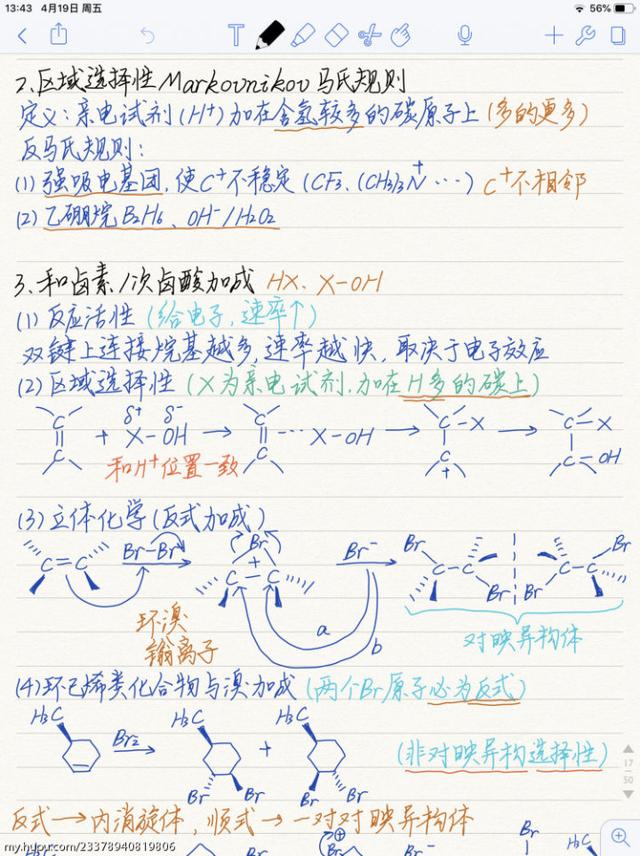 13:43 4月19日 周五
56%
2、区域选择性 Markovnikov 马氏规则
定义：亲电试剂(H⁺)加在含氢较多的碳原子上 (多的更多)
反马氏规则：
(1) 强吸电基团，使C⁺不稳定 (CF₃、(CH₃)₃N⁺ …) C⁺不相邻
(2) 乙硼烷 B₂H₆、OH⁻/H₂O₂
3、和卤素/次卤酸加成 HX、X-OH
(1) 反应活性 (给电子，速率↑)
双键上连接烷基越多，速率越快，取决于电子效应
(2) 区域选择性 (X为亲电试剂，加在H多的碳上)
C C + δ⁺ δ⁻ X-OH → C C … X-OH → C-X C + → C-X C=OH
和H⁺位置一致
(3) 立体化学 (反式加成)
C=C Br-Br → Br + C-C Br⁻ → Br C-C Br Br C-C Br
环溴
鎓离子
a
b
对映异构体
(4) 环己烯类化合物与溴加成 (两个Br原子必为反式)
H₃C Br₂ → H₃C Br Br + H₃C Br Br
(非对映异构选择性)
反式→内消旋体，顺式→一对对映异构体
17
50
my.hupu.com/23378940819806
Br
Br
H₃C